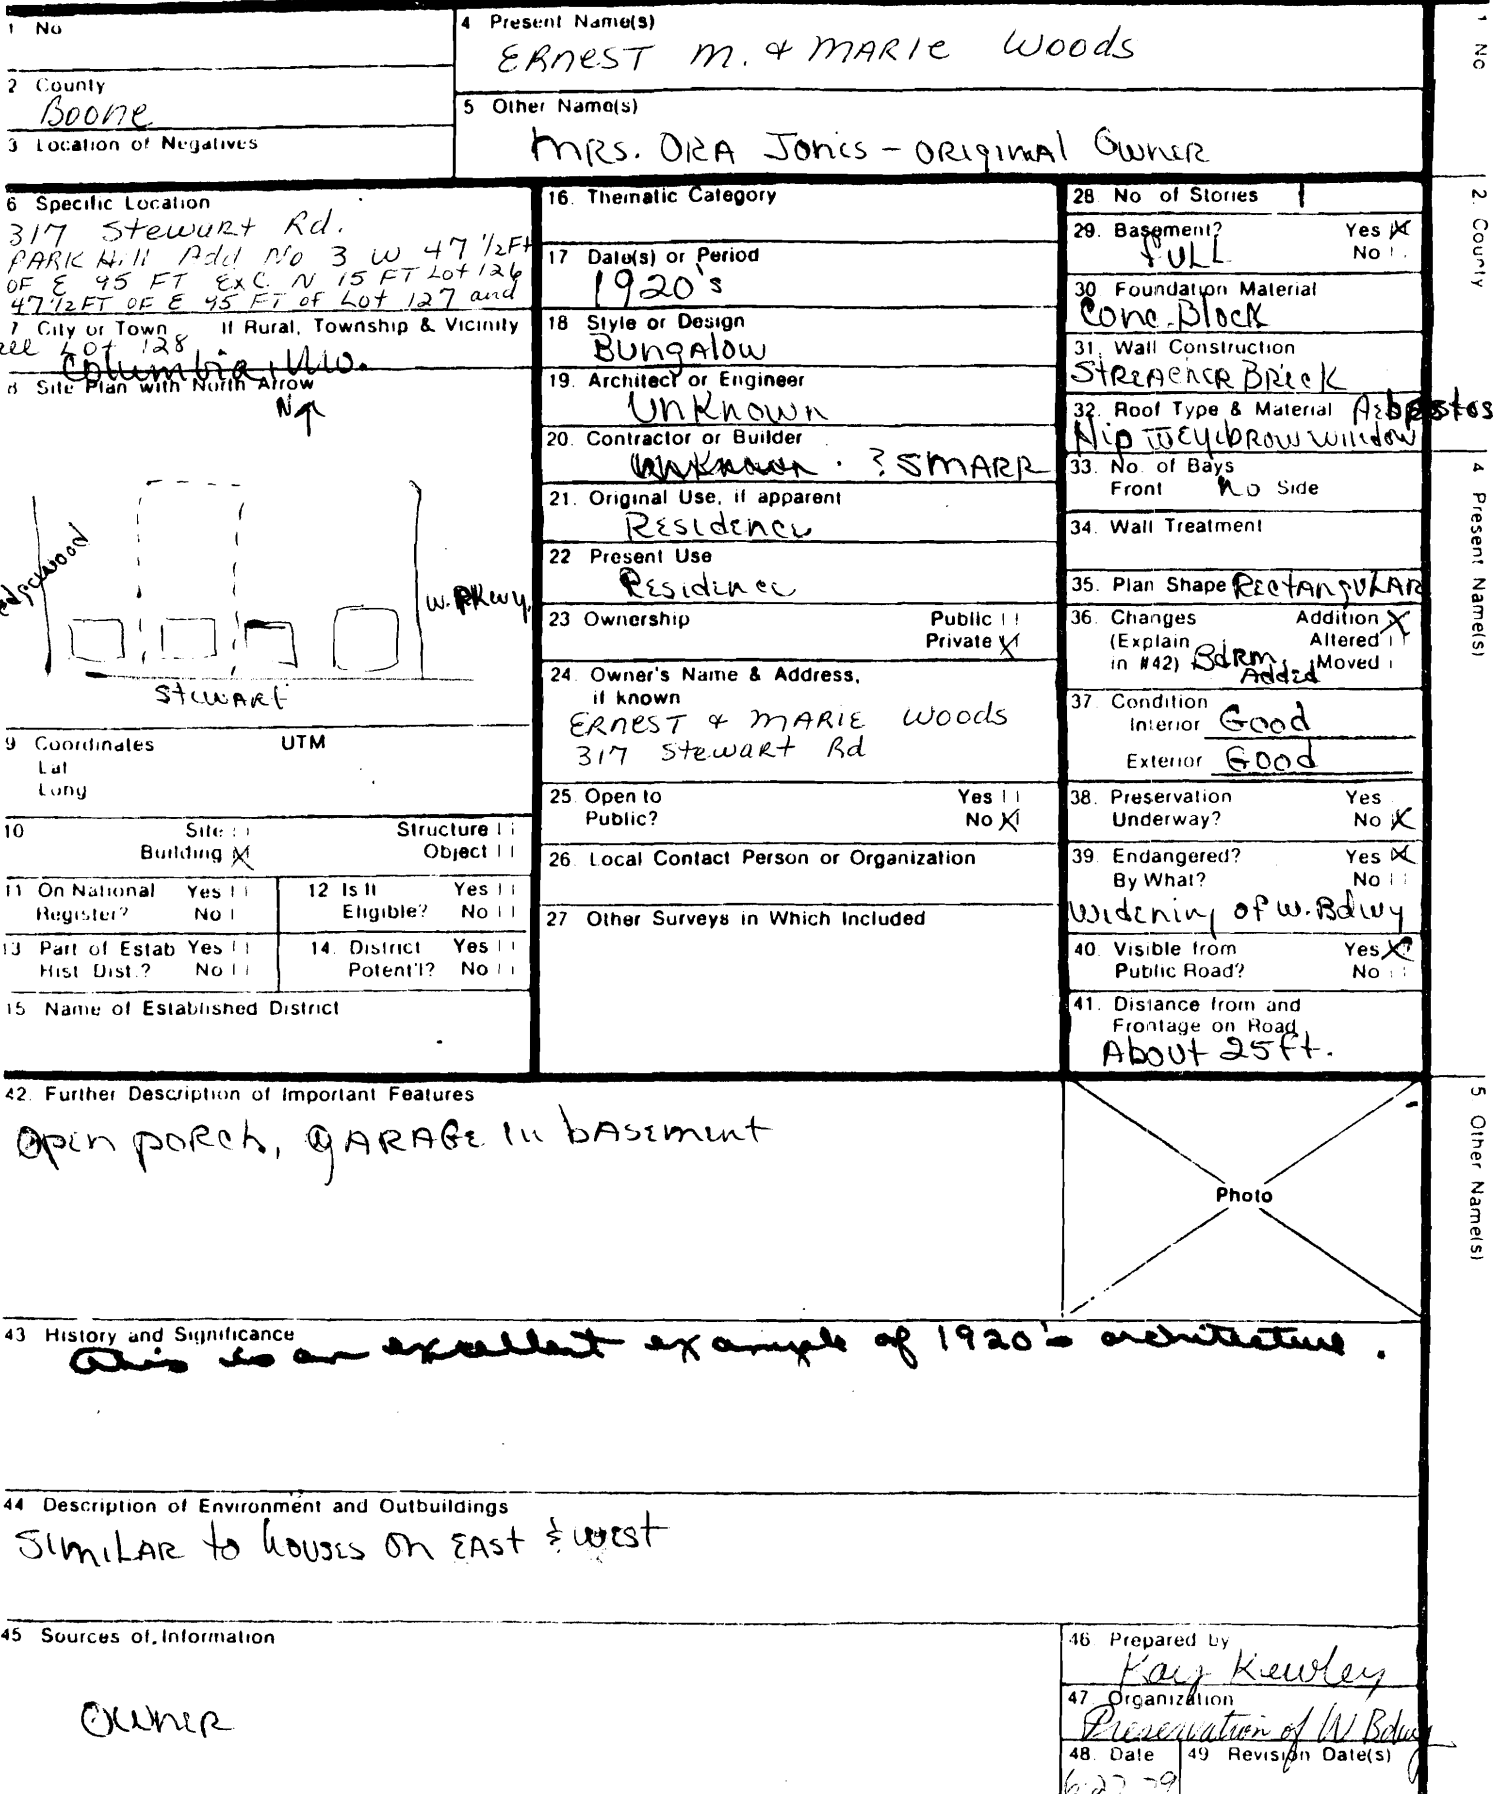 1 No
2 County
Boone
3 Location of Negatives
4 Present Name(s)
ERNEST M. & MARIE WOODS
5 Other Name(s)
MRS. ORA Jones - ORIGINAL OWNER
6 Specific Location
317 Stewart Rd.
PARK Hill Add No 3 W 47 1/2 Ft
OF E 95 FT Exc N 15 FT Lot 126
47 1/2 FT OF E 95 FT of Lot 127 and
7 City or Town If Rural, Township & Vicinity
all Lot 128
Columbia, Mo.
8 Site Plan with North Arrow
N
edgewood
W. PKwy.
STEWART
9 Coordinates UTM
Lat
Long
10 Site Structure
Building X Object
11 On National Register? Yes No
12 Is It Eligible? Yes No
13 Part of Estab Hist Dist.? Yes No
14. District Potent'l? Yes No
15 Name of Established District
16. Thematic Category
17 Date(s) or Period
1920's
18 Style or Design
BUNGALOW
19. Architect or Engineer
UNKNOWN
20. Contractor or Builder
Unknown . ? SMARR
21. Original Use, if apparent
Residence
22 Present Use
Residence
23 Ownership Public
Private X
24. Owner's Name & Address,
if known
ERNEST & MARIE WOODS
317 Stewart Rd
25. Open to Yes
Public? No X
26. Local Contact Person or Organization
27 Other Surveys in Which Included
28. No of Stories 1
29. Basement? Yes X
FULL No
30 Foundation Material
Conc. Block
31. Wall Construction
STREACHER BRICK
32. Roof Type & Material Asbestos
Hip w eyebrow window
33. No. of Bays
Front No Side
34. Wall Treatment
35. Plan Shape RECTANGULAR
36. Changes Addition X
(Explain Altered
in #42) Bdrm Moved
Added
37. Condition
Interior Good
Exterior Good
38. Preservation Yes
Underway? No X
39. Endangered? Yes X
By What? No
Widening of W. Bdwy
40. Visible from Yes X
Public Road? No
41. Distance from and
Frontage on Road
About 25 ft.
42. Further Description of Important Features
Open porch, GARAGE in basement
Photo
43 History and Significance
This is an excellent example of 1920's architecture.
44 Description of Environment and Outbuildings
SIMILAR to houses on EAST & west
45 Sources of Information
OWNER
46 Prepared by
Kay Kewley
47. Organization
Preservation of W Bdwy
48. Date 49 Revision Date(s)
6-27-79
1 No
2. County
4 Present Name(s)
5 Other Name(s)